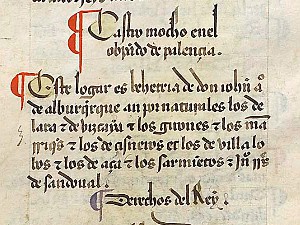 Castro mocho en el
obpado de palençia.
Este logar es behetria de don johñ aº
de alburqrque an por naturales los de
lara & de bizcaya & los girones & los man
rriqs & los de cisneros & los de villa lo
bos & los de aça & los sarmietos & ju rrs
de sandoual.
Derechos del Rey